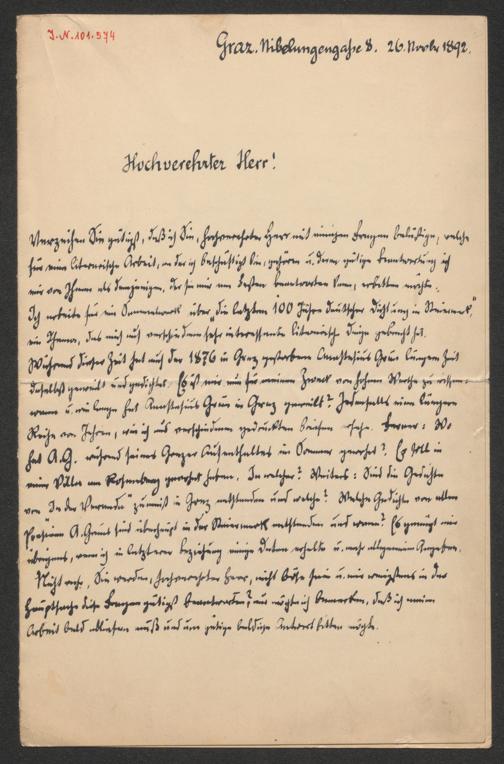 J.N. 101.574
Graz. Nibelungengaße 8. 26. Novbr 1892.
Hochverehrter Herr!
Verzeihen Sie gütigst, daß ich Sie, hochverehrter Herr mit einigen Fragen belästige, welche
für eine literarische Arbeit, an der ich beschäftigt bin, gehören u. deren gütige Beantwortung ich
mir von Ihnen als demjenigen, der sie mir am besten beantworten kann, erbitten möchte.
Ich arbeite für ein Sammelwerk über „die letzten 100 Jahre deutscher Dichtung in Steiermark“,
ein Thema, das mich auf verschiedene sehr interessante literarische Dinge gebracht hat.
Während dieser Zeit hat auch der 1876 in Graz gestorbene Anastasius Grün längere Zeit
daselbst geweilt und gedichtet. Es ist mir nun für meinen Zweck von hohem Werthe zu wissen:
wann u. wie lange hat Anastasius Grün in Graz geweilt? Jedenfalls eine längere
Reihe von Jahren, wie ich aus verschiedenen gedruckten Briefen ersehe. Ferner: Wo
hat A.G. während seines Grazer Aufenthaltes im Sommer gewohnt? Er soll in
einer Villa am Rosenberg gewohnt haben. In welcher? Weiters: Sind die Gedichte
von „In der Veranda“ zumeist in Graz entstanden und welche? Welche Gedichte von allen
Poesieen A. Grüns sind überhaupt in der Steiermark entstanden und wann? Es genügt mir
übrigens, wenn ich in letzterer Beziehung einige Daten erhalte u. mehr allgemeine Angaben.
Nicht wahr, Sie werden, hochverehrter Herr, nicht böse sein u. mir wenigstens in der
Hauptsache diese Fragen gütigst beantworten, nur möchte ich bemerken, daß ich meine
Arbeit bald abliefern muß und um gütige baldige Antwort bitten möchte.